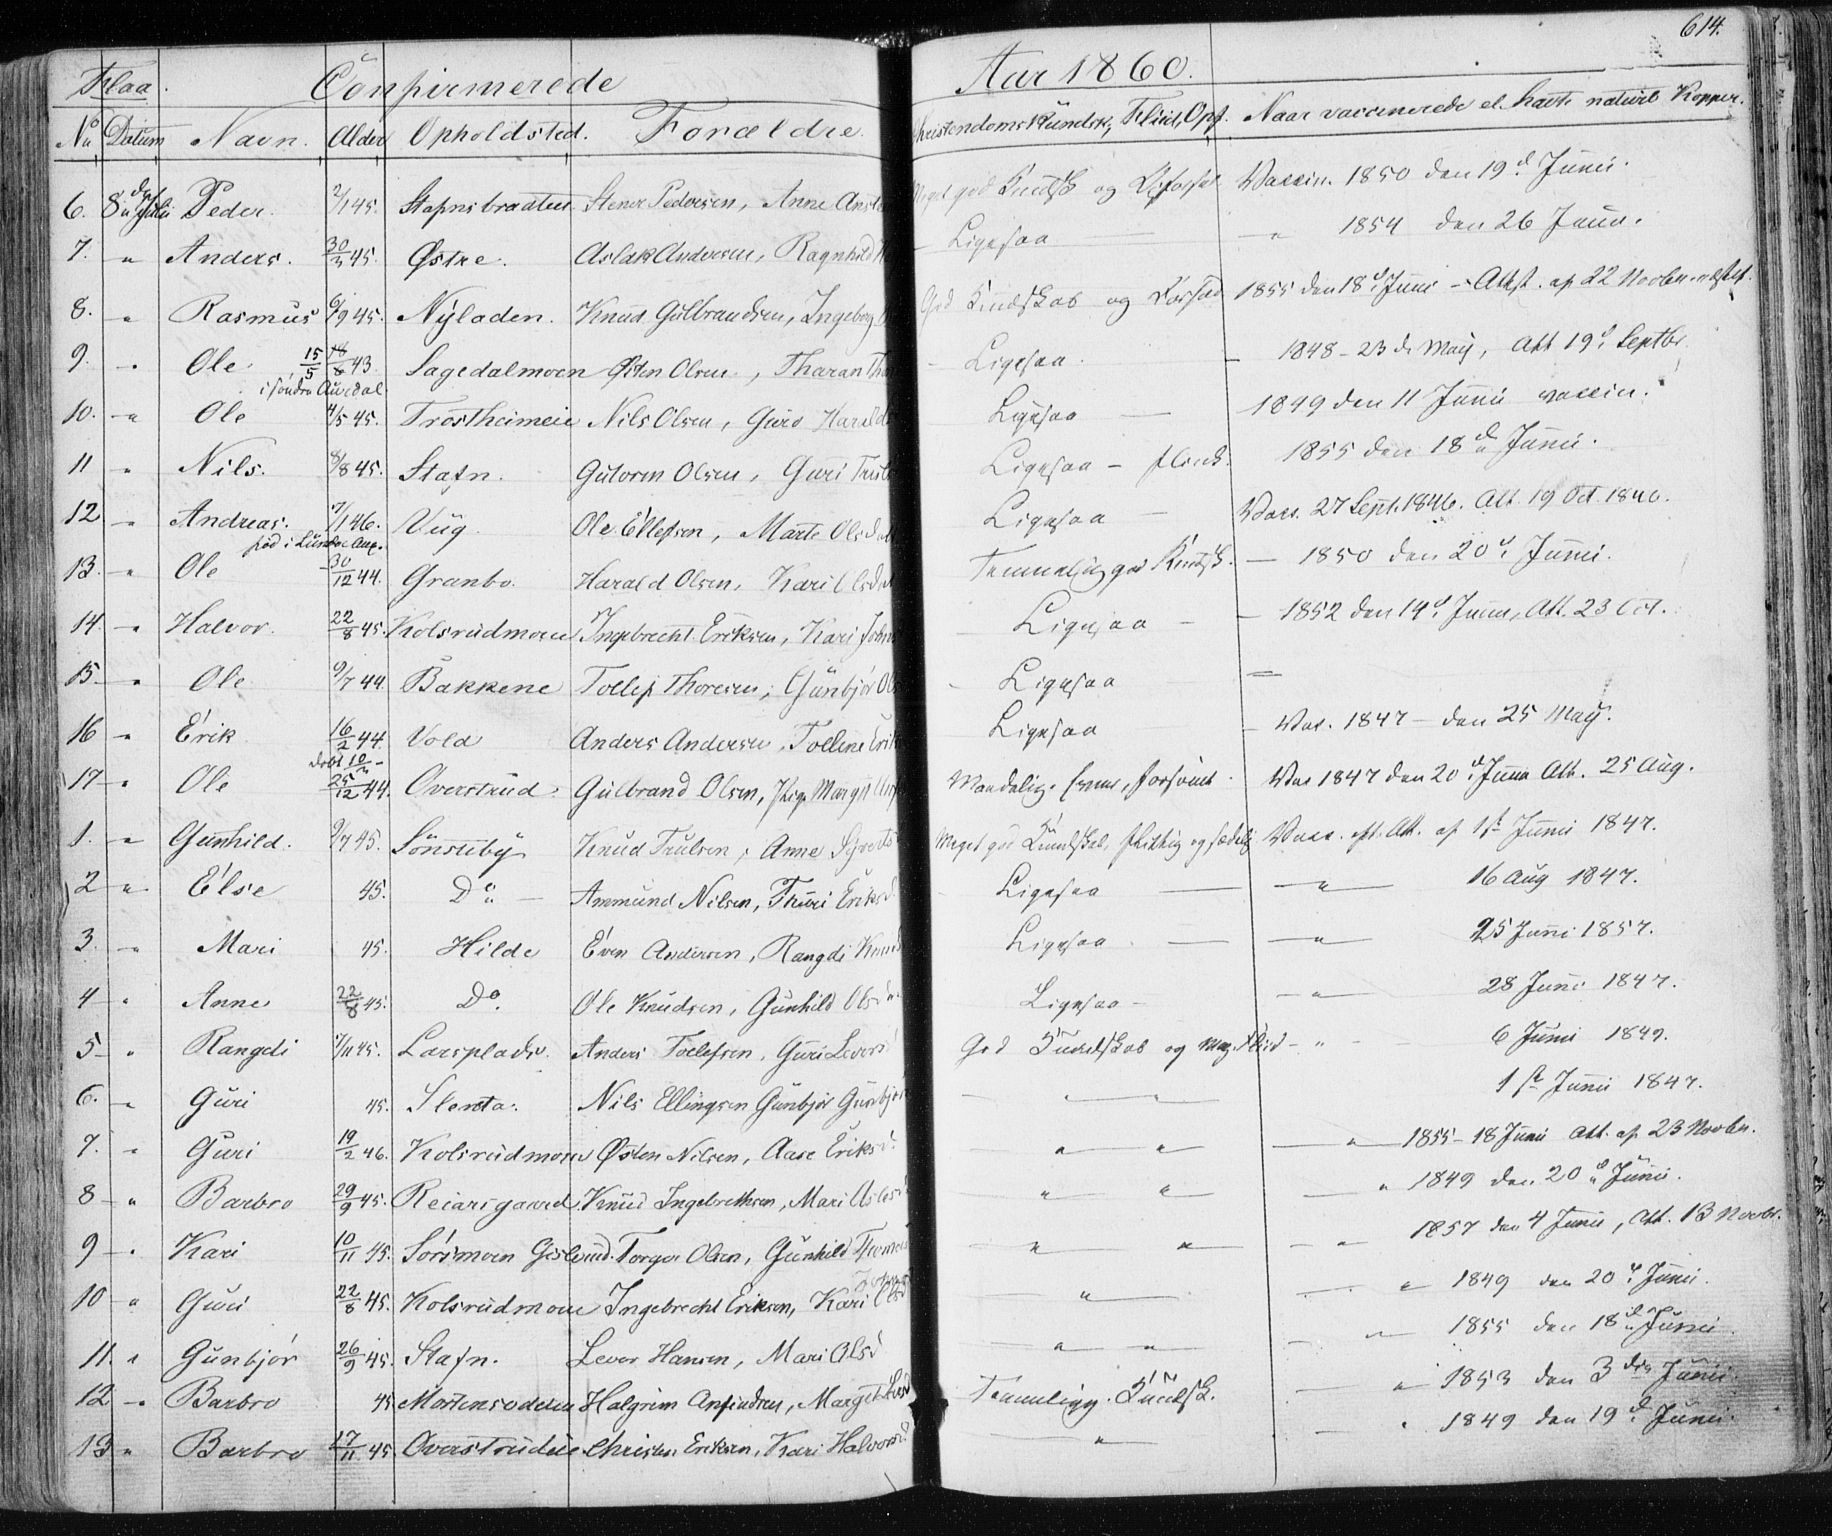 614.
Flaa. Confirmerede Aar 1860.
No Datum Navn. Alder Opholdsted. Forældre. Christendoms Kundsk, Fliid, Opf. Naar vaccinerede el. havte naturl Kopper.
6. 8de Julii Peder. 2/1 45. Stafnsbraaten Stener Pedersen, Anne Meget god Kundsk og Vaccin. 1850 den 19d Junii.
7. " Anders. 30/3 45. Østre. Aslak Andersen, Ragnhild Ligesaa " 1854 den 26 Juni.
8. " Rasmus 6/9 45. Nyladen. Knud Gulbrandsen, Ingeborg God Kundskab og Forstand 1855 den 18d Juni - Attst. af 22 Novbr.
9. " Ole 15/5 18/8 43 Sagedalmoen Østen Olsen, Tharan Ligesaa. 1848 - 23d May, Att 19d Septbr.
i søndre Aurdal
10. " Ole 4/5 45. Trostheimeie Nils Olsen, Guro Haralds Ligesaa 1849 den 11 Junii vaccin.
11 " Nils. 8/8 45. Stafn. Gutorm Olsen, Guri Ligesaa - flink. 1855 den 18d Junii.
12 " Andreas. 7/1 46. Vüg. Ole Ellefsen, Marte Olsdatt Ligesaa Vacc. 27 Sept. 1846. Att. 19 Oct. 1846.
fød i
13. " Ole 30/12 44. Granbo. Harald Olsen, Kari Olsdat Temmelig god Kundsk. - 1850 den 20d Junii.
14. " Halvor. 22/8 45. Kolsrudmoen Ingebrecht Eriksen, Kari Johns Ligesaa - 1852 den 14d Junii, Att. 23 Oct.
15. " Ole 9/7 44 Bakkene Tollef Thoresen, Gunbjör Ols Ligesaa
16 " Erik 16/2 44. Vold Anders Andersen, Tolline Erik Ligesaa Vac. 1847 - den 25 May.
døbt 10/3
17 " Ole 25/12 44. Overstrud. Gulbrand Olsen, Margit Maadelig. Evner, forsømt. Vac 1847 den 20d Junii Att. 25 Aug.
1. " Gunhild. 9/7 45. Sönsteby Knud Trulsen, Anne Meget god Kundskab, flittig og sædelig Vacc. eft. Att. af 1ste Junii 1847.
2 " Else 45. Do Ammund Nilsen, Thuri Eriksd Ligesaa " 16 Aug 1847.
3. " Mari 45. Hilde Even Andersen, Rangdi Knud Ligesaa " 25 Juni 1857.
4 " Anne 22/8 45. Do. Ole Knudsen, Gunhild Olsd Ligesaa " 28 Juni 1847.
5 " Rangdi 7/11 45. Larsplads. Anders Tollefsen, Guri Leversd God Kundskab og meg. Fliid " 6 Juni 1849.
6. " Guri 45. Slenta. Nils Ellingsen Gunbjör Gunbjör " 1ste Junii 1847.
7. " Guri 19/2 46. Kolsrudmoen Østen Nilsen, Aase Eriksd. " " " 1855 - 18 Junii Att. af 23 Novbr.
8 " Barbro 29/9 45. Reiarsgaard. Knud Ingebrethsen, Mari Aslesd " " " 1849 den 20d Junii.
9 " Kari 10/11 45. Sörsmoen Torger Olsen, Gunhild " " " 1857 den 4 Junii, Att. 13 Novbr.
10 " Guri 22/8 45. Kolsrudmoen Ingebrecht Eriksen, Kari Olsd " " 1849 den 20d Junii.
11. " Gunbjör 26/9 45. Stafn. Lever Hansen, Mari Olsd " " " 1855 den 18d Junii
12 " Barbro 45 Mortensoderen Halgrim Anfindsen, Margit Temmelig. Kundsk. " 1853 den 3die Junii
13 " Barbro 17/11 45. Overstrudeie Christen Eriksen, Kari Halvorsd " " 1849 den 19d Junii.